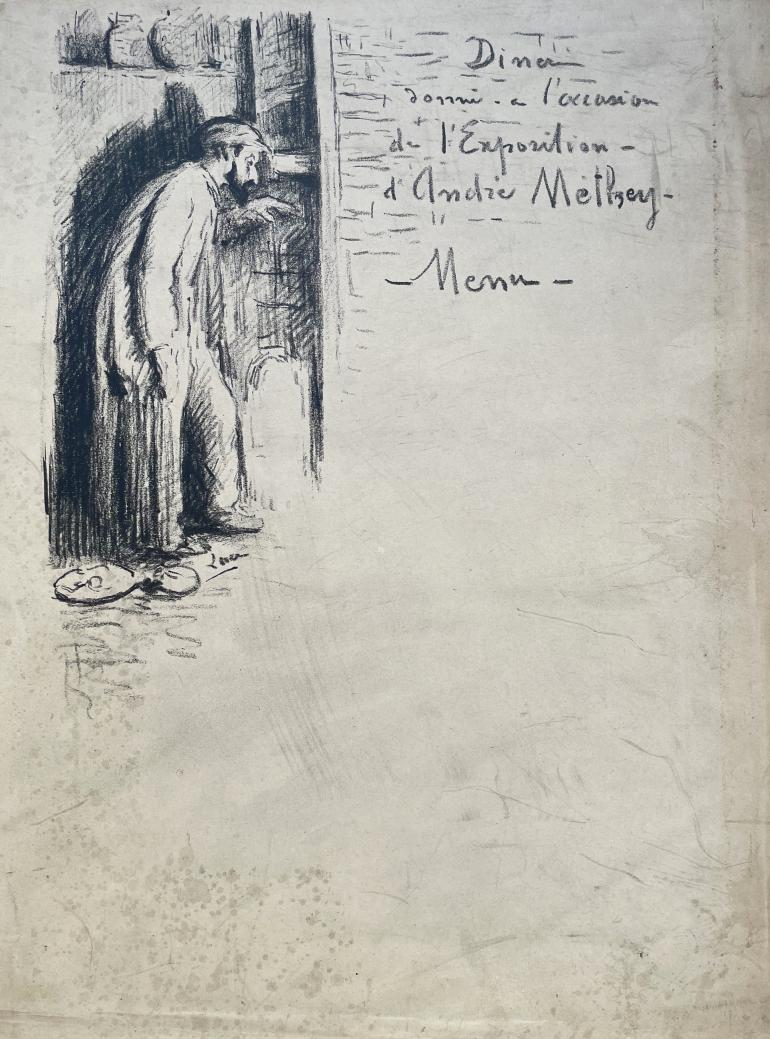 Diner
donné - a l'occasion
de l'Exposition -
d'André Méthey -
- Menu -
Luce